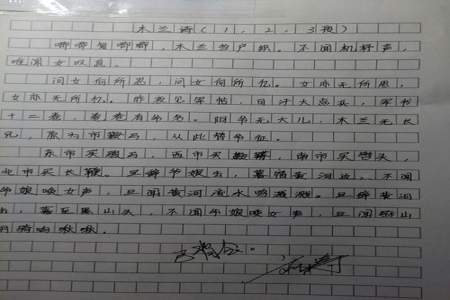 木兰诗(1,2,3段)
唧唧复唧唧,木兰当户织。不闻机杼声,
唯闻女叹息。
问女何所思,问女何所忆。女亦无所思,
女亦无所忆。昨夜见军帖,可汗大点兵,军书
十二卷,卷卷有爷名。阿爷无大儿,木兰无长
兄,愿为市鞍马,从此替爷征。
东市买骏马,西市买鞍鞯,南市买辔头,
北市买长鞭。旦辞爷娘去,暮宿黄河边。不闻
爷娘唤女声,但闻黄河流水鸣溅溅。旦辞黄河
去,暮至黑山头,不闻爷娘唤女声,但闻燕山
胡骑鸣啾啾。